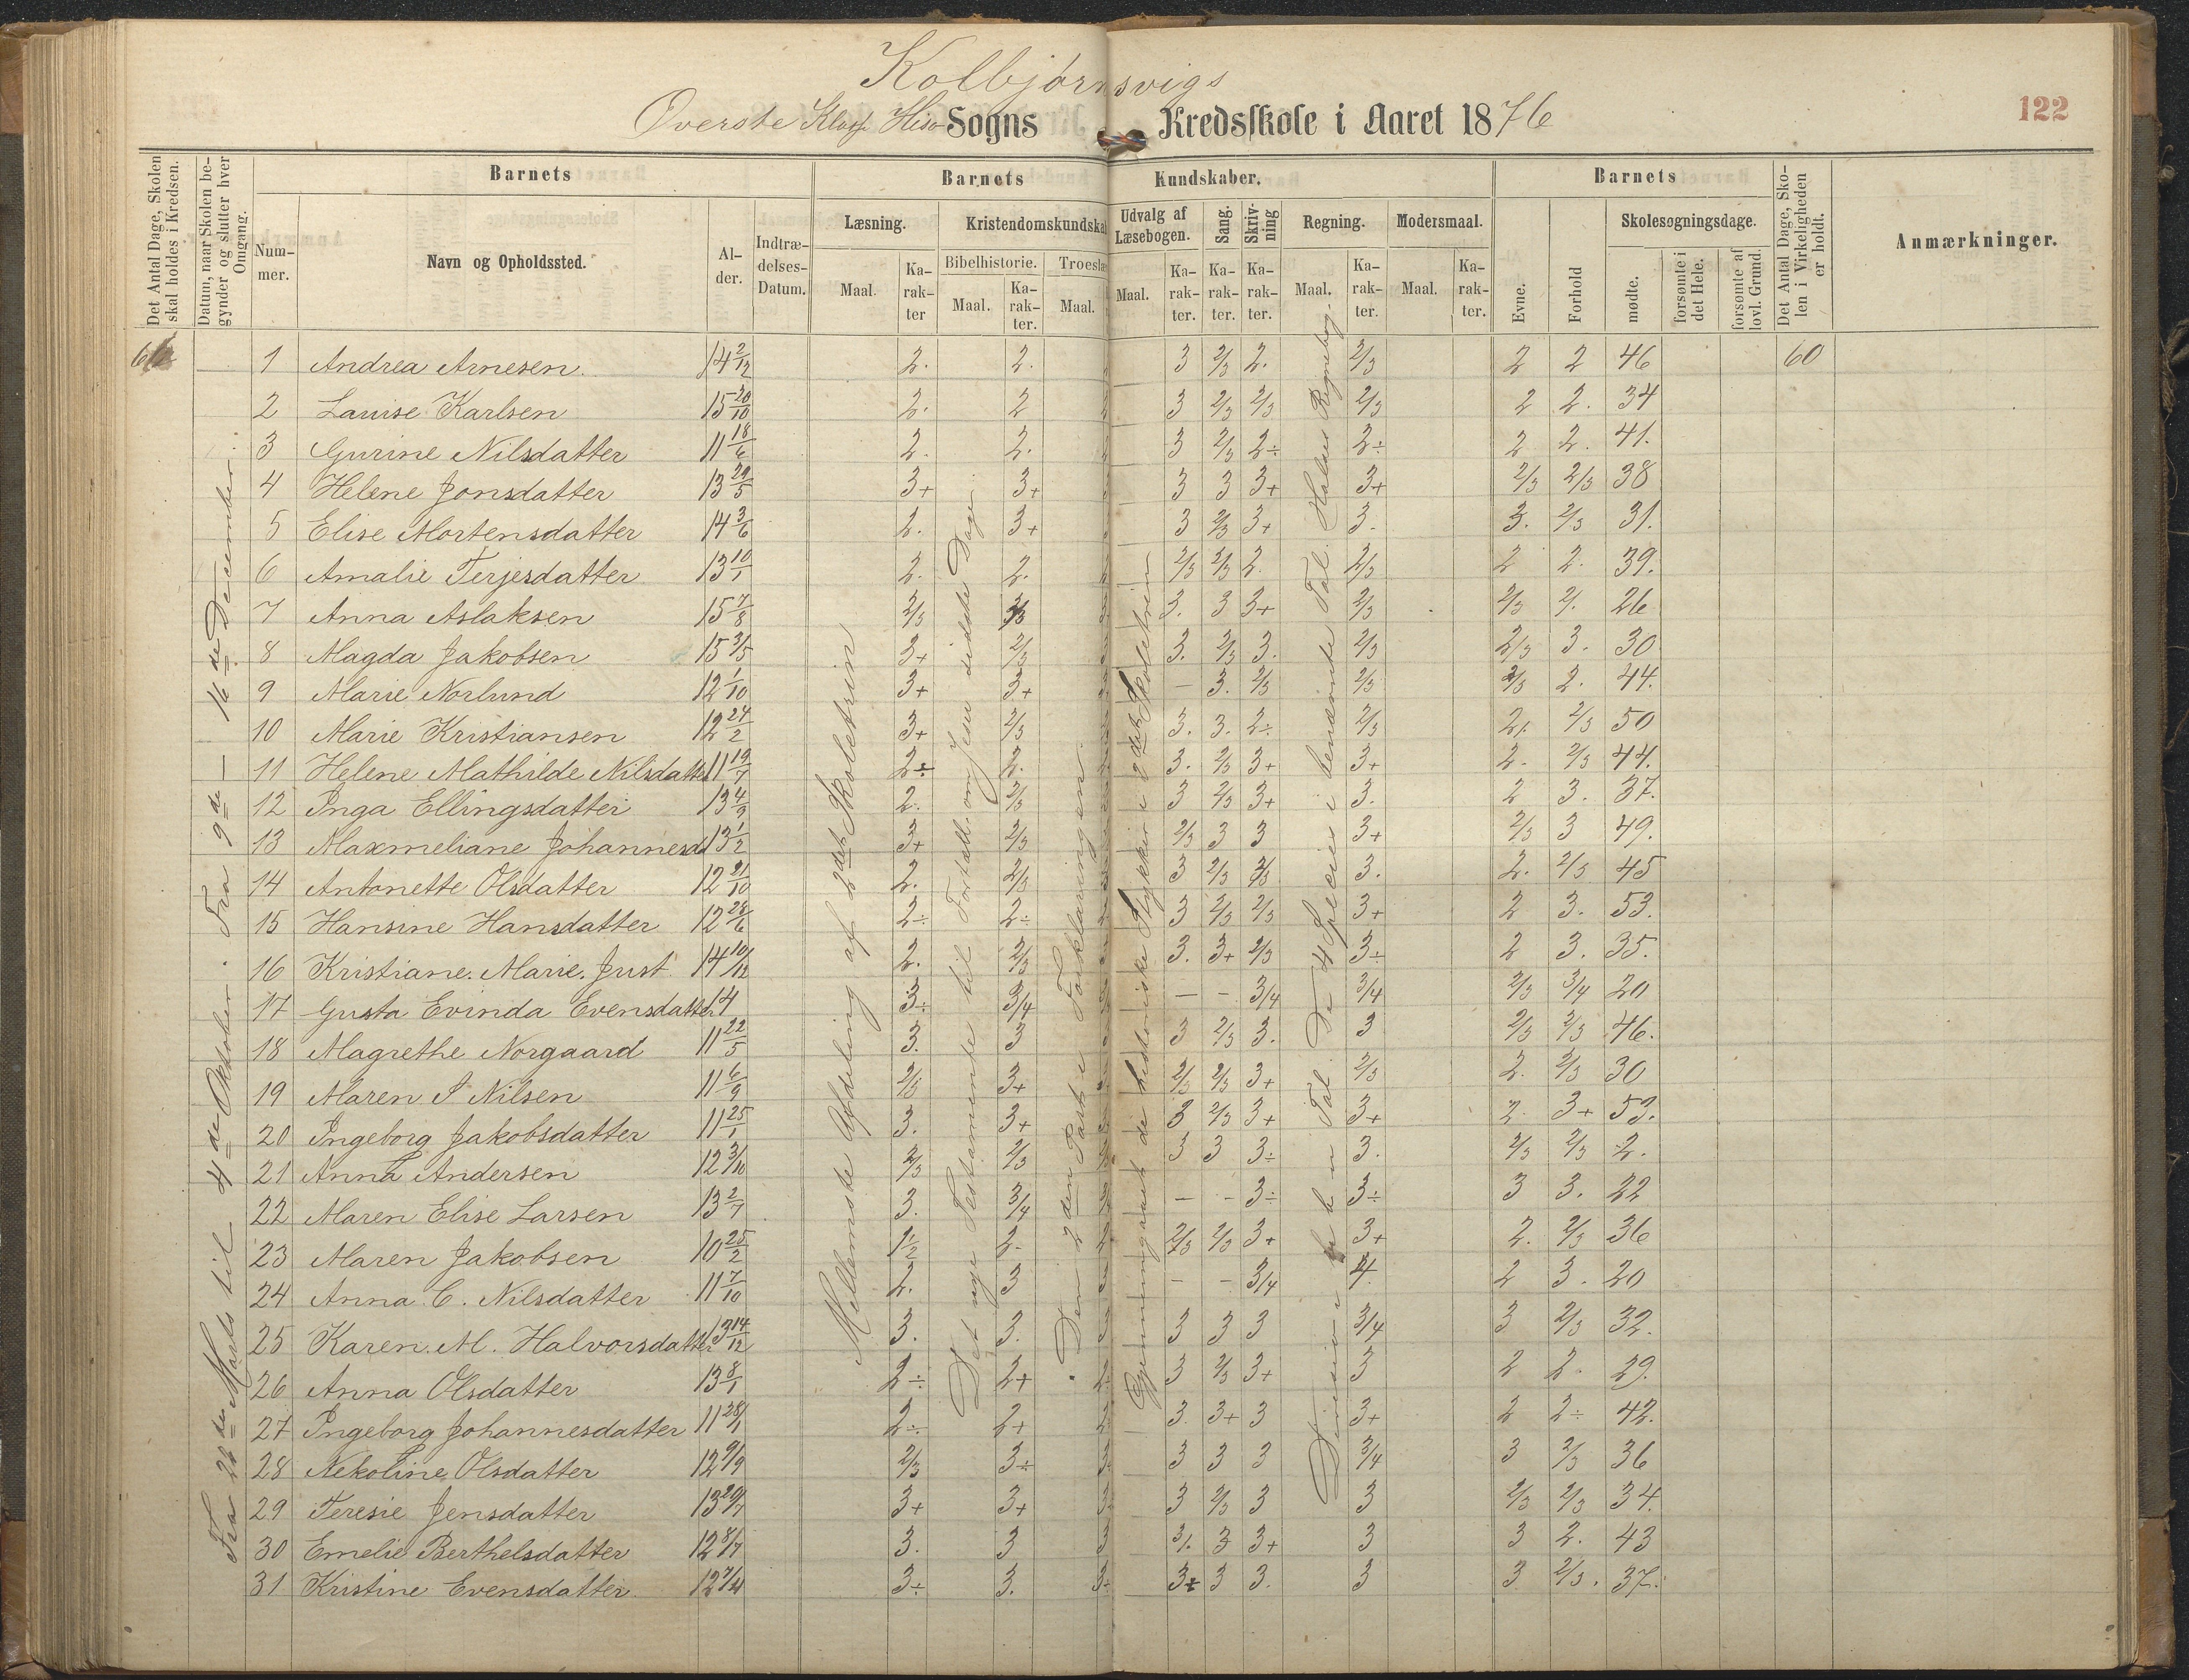 Kolbjørnsvigs
Øverste Klasse Hisø Sogns Kredsskole i Aaret 1876
122
Det Antal Dage, Skolen skal holdes i Kredsen.
Datum, naar Skolen begynder og slutter hver Omgang.
Barnets
Barnets Kundskaber.
Barnets
Det Antal Dage, Skolen i Virkeligheden er holdt.
Anmærkninger.
Nummer.
Navn og Opholdssted.
Alder.
Indtrædelses-Datum.
Læsning.
Kristendomskundska
Udvalg af Læsebogen.
Sang.
Skrivning
Regning.
Modersmaal.
Evne.
Forhold
Skolesøgningsdage.
Bibelhistorie.
Troeslæ
Maal.
Karakter
Maal.
Karakter.
Maal.
Maal.
Karakter.
Karakter.
Karakter.
Maal.
Karakter.
Maal.
Karakter.
mødte.
forsømte i det Hele.
forsømte af lovl. Grund.
Fra 28de Marts til 4de Oktober. Fra 9de — 16de December.
Mellemste Afdeling af 2det Skoletrin
Det nye Testamente til Fortæll. om Jesu sidste Dage.
Den 2den Part i Forklaringen.
Gjennemgaaet de historiske Stykker i 2det Skoletrin
De 4 Species i benævnte Tal. Halses Regnebog.
1 Andrea Arnesen. 14 2/12 2. 2. 3 2/3 2. 2/3 2 2 46 60
2 Lauise Karlsen 15 20/10 2. 2 3 2/3 2/3 2/3 2 2. 34
3 Gurine Nilsdatter 11 18/6 2. 2. 3 2/3 2÷ 2÷ 2 2. 41.
4 Helene Jonsdatter 13 29/5 3+ 3+ 3 3 3+ 3+ 2/3 2/3 38
5 Elise Mortensdatter 14 3/6 2. 3+ 3 2/3 3+ 3. 3. 2/3 31.
6 Amalie Terjesdatter 13 10/1 2. 2. 2/3 2/3 2. 2/3 2 2. 39.
7 Anna Aslaksen 15 7/8 2/3 3. 3 3+ 2/3 2/3 2. 26
8 Magda Jakobsen 15 3/5 3+ 2/3 3. 2/3 3. 2/3 2/3 3. 30
9 Marie Norlund 12 1/10 3+ 3+ — 3. 2/3 2/3 2/3 2. 44.
10 Marie Kristiansen 12 24/2 3+ 2/3 3. 3. 2÷ 2/3 2. 2/3 50
11 Helene Mathilde Nilsdatter 11 19/7 2÷ 2. 3. 2/3 3+ 3+ 2. 2/3 44.
12 Inga Ellingsdatter 13 4/9 2. 2/3 3 2/3 3+ 3. 2 3. 37.
13 Maxmeliane Johannesd 13 1/2 3+ 2/3 2/3 3 3 3+ 2/3 3 49.
14 Antonette Olsdatter 12 21/10 2. 2/3 3 2/3 2/3 3. 2. 2/3 45
15 Hansine Hansdatter 12 28/6 2÷ 2÷ 3 2/3 2/3 3+ 2 3. 53.
16 Kristiane. Marie. Just 14 10/12 2. 2/3 3. 3+ 2/3 3÷ 2 3. 35.
17 Gusta Evinda Evensdatter 14 3÷ 3/4 — - 3/4 3/4 2/3 3/4 20
18 Magrethe Norgaard 11 22/5 3. 3 3 2/3 3. 3 2/3 2/3 46.
19 Maren I Nilsen 11 6/9 2/3 3+ 2/3 2/3 3+ 2/3 2. 2/3 30
20 Ingeborg Jakobsdatter 11 25/1 3. 3+ 3 2/3 3+ 3+ 2 3+ 53.
21 Anna Andersen 12 3/10 2/3 2/3 3 3 3÷ 3. 2/3 2/3 2.
22 Maren Elise Larsen 13 2/7 3. 3/4 — - 3÷ 3÷ 3 3. 22
23 Maren Jakobsen 10 25/2 1 1/2 2. 2/3 2/3 3+ 3+ 2. 2/3 36
24 Anna C. Nilsdatter 11 7/10 2. 3 - - 3/4 4. 2 3. 20
25 Karen. M. Halvorsdatter 13 14/12 3. 3. 3 3 3 3/4 3 2/3 32.
26 Anna Olsdatter 13 8/1 2÷ 2+ 3 2/3 3+ 3 2 2. 29.
27 Ingeborg Johannesdatter 11 28/1 2÷ 2+ 3. 3+ 3 3+ 2 2÷ 42.
28 Nekoline Olsdatter 12 9/9 2/3 3÷ 3 3 3 3/4 3 2/3 36
29 Teresie Jensdatter 13 20/7 3+ 3+ 3 2/3 3 3 2/3 2/3 34.
30 Emelie Berthelsdatter 12 8/7 3. 3 3 3+ 3 3 2. 43
31 Kristine Evensdatter 12 7/4 3÷ 3. 3÷ 3 3. 3 3 2/3. 37.